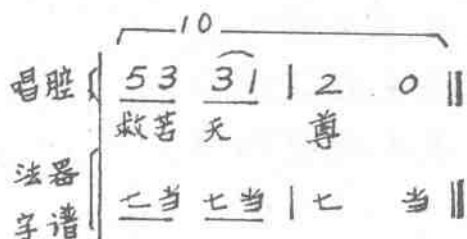 10
唱腔 53 31 | 2 0 ‖
救苦 天 尊
法器
字谱 七当 七当 | 七 当 ‖